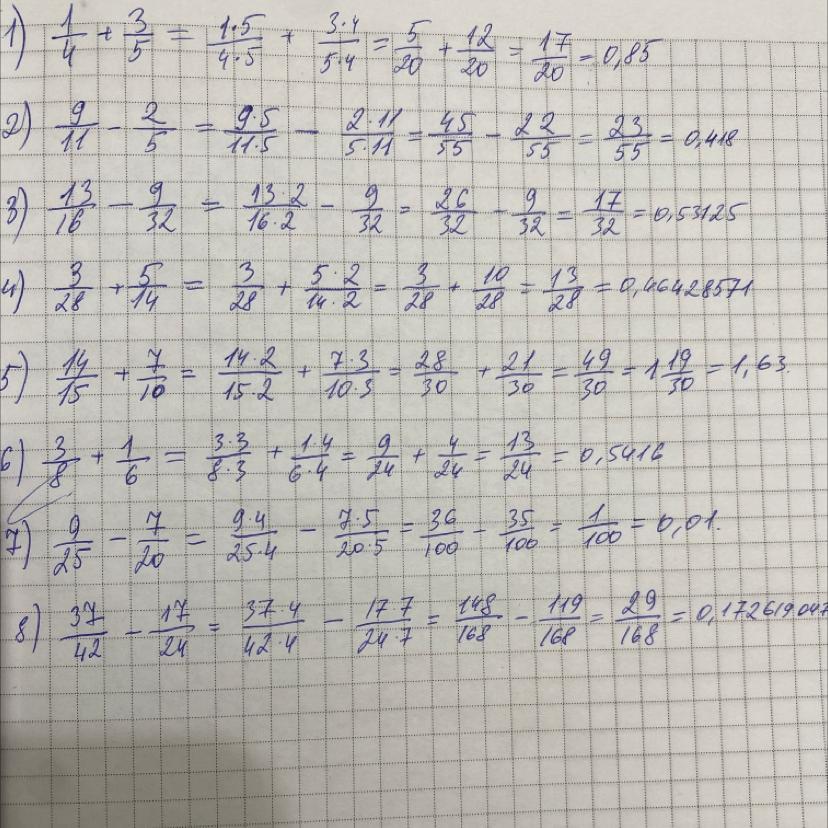 1) 1/4 + 3/5 = 1·5/4·5 + 3·4/5·4 = 5/20 + 12/20 = 17/20 = 0,85
2) 9/11 - 2/5 = 9·5/11·5 - 2·11/5·11 = 45/55 - 22/55 = 23/55 = 0,418
3) 13/16 - 9/32 = 13·2/16·2 - 9/32 = 26/32 - 9/32 = 17/32 = 0,53125
4) 3/28 + 5/14 = 3/28 + 5·2/14·2 = 3/28 + 10/28 = 13/28 = 0,46428571
5) 14/15 + 7/10 = 14·2/15·2 + 7·3/10·3 = 28/30 + 21/30 = 49/30 = 1 19/30 = 1,63.
6) 3/8 + 1/6 = 3·3/8·3 + 1·4/6·4 = 9/24 + 4/24 = 13/24 = 0,5416
7) 9/25 - 7/20 = 9·4/25·4 - 7·5/20·5 = 36/100 - 35/100 = 1/100 = 0,01.
8) 37/42 - 17/24 = 37·4/42·4 - 17·7/24·7 = 148/168 - 119/168 = 29/168 = 0,172619047